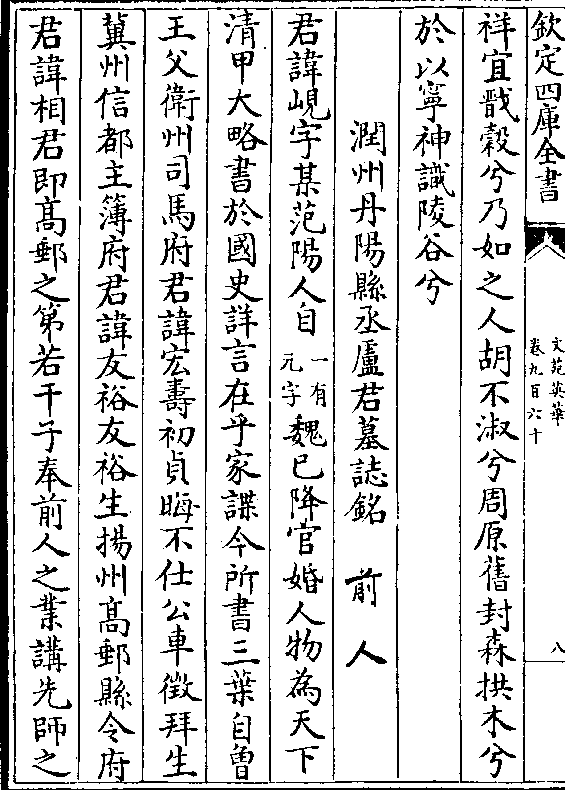 欽定四庫全書
文苑英華
卷九百六十
八
祥宜戩穀兮乃如之人胡不淑兮周原舊封森拱木兮
於以寧神識陵谷兮
潤州丹陽縣丞盧君墓誌銘　前人
君諱峴字某范陽人自一有元字魏已降官婚人物為天下
清甲大略書於國史詳言在乎家諜今所書三葉自曾
王父衛州司馬府君諱宏壽初貞晦不仕公車徵拜生
冀州信都主簿府君諱友裕友裕生揚州髙郵縣令府
君諱相君即髙郵之第若干子奉前人之業講先師之